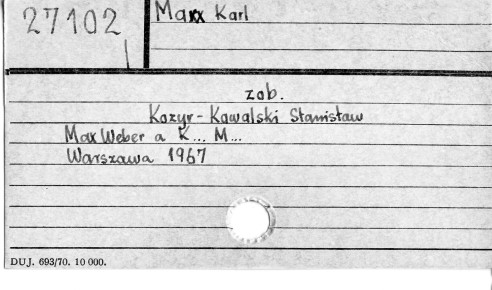 27102
Marx Karl
zob.
Kozyr-Kowalski Stanisław
Max Weber a K... M...
Warszawa 1967
DUJ. 693/70. 10 000.